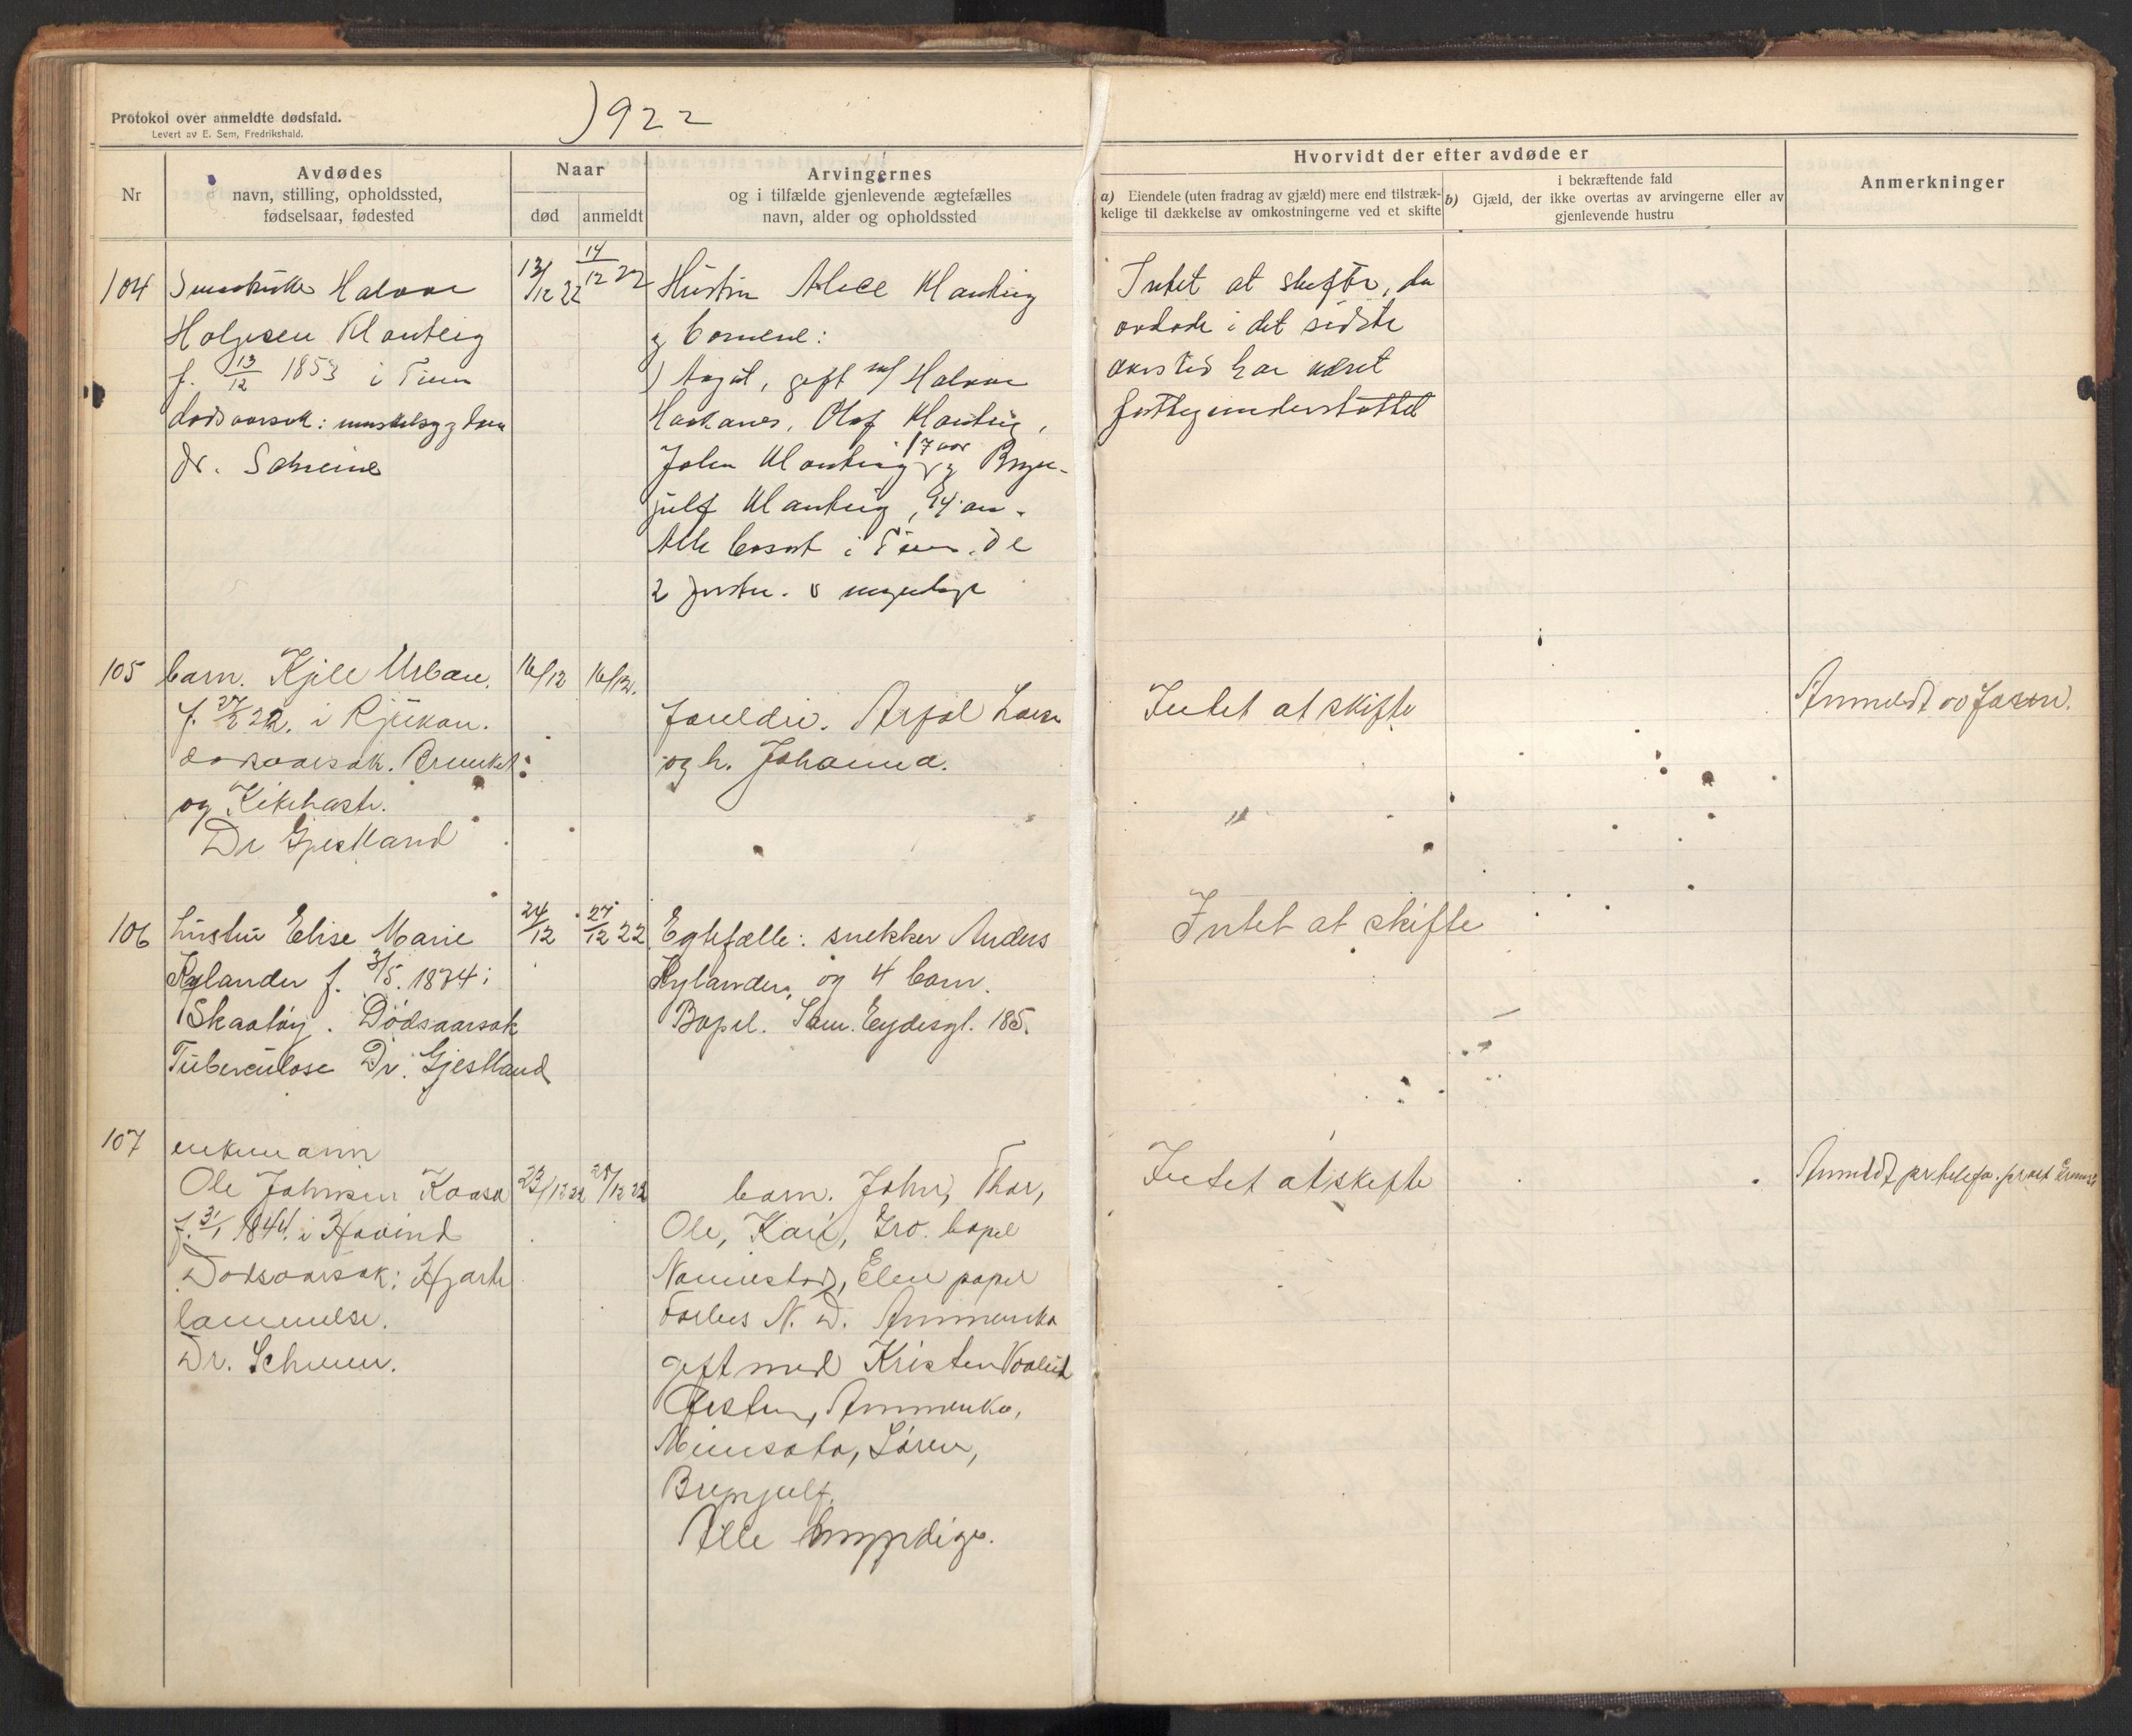 Protokol over anmeldte dødsfald.
Levert av E. Sem, Fredrikshald.
1922
Nr
Avdødes
navn, stilling, opholdssted,
fødselsaar, fødested
Naar
død
anmeldt
Arvingernes
og i tilfælde gjenlevende ægtefælles
navn, alder og opholdssted
Hvorvidt der efter avdøde er
a) Eiendele (uten fradrag av gjæld) mere end tilstræk-
kelige til dækkelse av omkostningerne ved et skifte
i bekræftende fald
b) Gjæld, der ikke overtas av arvingerne eller av
gjenlevende hustru
Anmerkninger
104
Halvor
Holjesen Klonteig
f. 13/12 1853 i Tinn
dødsaarsak: muskelsygdom
Dr. Schreiner
13/12 22
14/12 22
Hustru Klonteig
og børnene:
gift m/ Halvor
Haakanes, Olaf Klonteig,
John Klonteig 17 aar og Bryn-
julf Klonteig, 14 aar.
Alle bosat i Tinn. De
2 umyndige
Intet at skifte, da
avdøde i det sidste
aarstid har været
fattigunderstøttet
105
barn. Kjell Urban.
f. 27/2 22. i Rjukan.
dødsaarsak.
og Kikhoste.
Dr Gjestland
16/12
16/12.
foreldre. Larsen
og h. Johanna.
Intet at skifte
"
Anmeldt av
106
hustru Elise Marie
Rylander f. 3/5. 1874 i
Skaatøy. Dødsaarsak
Tuberculose Dr. Gjestland
24/12
27/12 22
Egtefælle: snekker Anders
Rylander, og 4 barn.
Bopel. Sam. Eydesgt. 185.
Intet at skifte
107
enkemann
Ole Johnsen Kaasa
f. 3/1 1844. i Hovind
Dødsaarsak: Hjerte
lammelse.
Dr. Schreiner.
23/12 22
28/12 22
barn. John, Thor,
Ole, Kari, Gro. bopel
Elen popel
Forbes N. D. Ammerika
gift med Kristen
Ammerika,
Minsota, Søren,
Brynjulf.
Alle myndige.
Intet at skifte
Anmeldt pr telefon